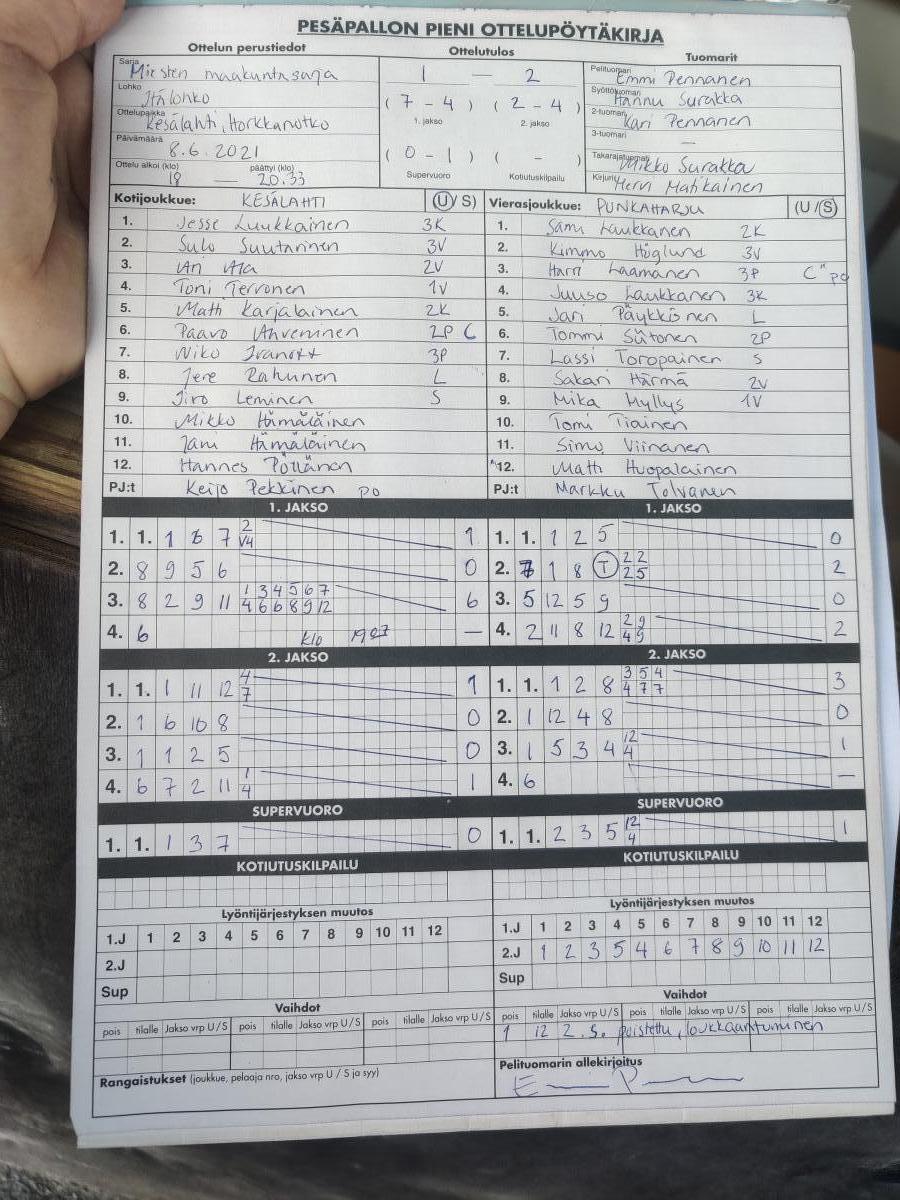 PESÄPALLON PIENI OTTELUPÖYTÄKIRJA
Ottelun perustiedot Ottelutulos Tuomarit
Sarja Miesten maakuntasarja
Lohko Itälohko
Ottelupaikka Kesälahti, Horkkanotko
Päivämäärä 8.6.2021
Ottelu alkoi (klo) 18 — päättyi (klo) 20.33
1 — 2
( 7 - 4 ) ( 2 - 4 )
1. jakso 2. jakso
( 0 - 1 ) ( - )
Supervuoro Kotiutuskilpailu
Pelituomari Emmi Pennanen
Syöttötuomari Hannu Surakka
2-tuomari Kari Pennanen
3-tuomari —
Takarajatuomari Mikko Surakka
Kirjuri Henri Matikainen
Kotijoukkue: KESÄLAHTI (U/S)
1. Jesse Luukkainen 3K
2. Sulo Suutarinen 3V
3. Ari Ala 2V
4. Toni Terronen 1V
5. Matti Karjalainen 2K
6. Paavo Ahveninen 2P C
7. Niko Ivanoff 3P
8. Jere Rahunen L
9. Jiro Leminen S
10. Mikko Hämäläinen
11. Jani Hämäläinen
12. Hannes Pöllänen
PJ:t Keijo Pekkinen po
Vierasjoukkue: PUNKAHARJU (U/S)
1. Samu Laukkanen 2K
2. Kimmo Höglund 3V
3. Harri Laamanen 3P C" po
4. Juuso Laukkanen 3K
5. Jari Päykkönen L
6. Tommi Sutonen 2P
7. Lassi Toropainen S
8. Sakari Härmä 2V
9. Mika Myllys 1V
10. Tomi Tiainen
11. Simo Viinanen
12. Matti Huopalainen
PJ:t Markku Tolvanen
1. JAKSO
1. 1. 1 6 7 2 V4 1
2. 8 9 5 6 0
3. 8 2 9 11 1 3 4 5 6 7 6
4 6 6 8 9 12
4. 6 klo 1907 —
2. JAKSO
1. 1. 1 11 12 4 7 1
2. 1 6 10 8 0
3. 1 1 2 5 0
4. 6 7 2 11 1 4 1
SUPERVUORO
1. 1. 1 3 7 0
KOTIUTUSKILPAILU
1. JAKSO
1. 1. 1 2 5 0
2. 1 8 T 2 2 2
2 5
3. 5 12 5 9 0
4. 2 11 8 12 2 9 2
4 9
2. JAKSO
1. 1. 1 2 8 3 5 4 3
4 7 7
2. 1 12 4 8 0
3. 1 5 3 4 12 4 1
4. 6 —
SUPERVUORO
1. 1. 2 3 5 12 4 1
KOTIUTUSKILPAILU
Lyöntijärjestyksen muutos
1.J 1 2 3 4 5 6 7 8 9 10 11 12
2.J
Sup
Vaihdot
pois tilalle Jakso vrp U/S pois tilalle Jakso vrp U/S pois tilalle Jakso vrp U/S
Rangaistukset (joukkue, pelaaja nro, jakso vrp U / S ja syy)
Lyöntijärjestyksen muutos
1.J 1 2 3 4 5 6 7 8 9 10 11 12
2.J 1 2 3 5 4 6 7 8 9 10 11 12
Sup
Vaihdot
pois tilalle Jakso vrp U/S pois tilalle Jakso vrp U/S pois tilalle Jakso vrp U/S
1 12 2. S. poistettu, loukkaantuminen
Pelituomarin allekirjoitus